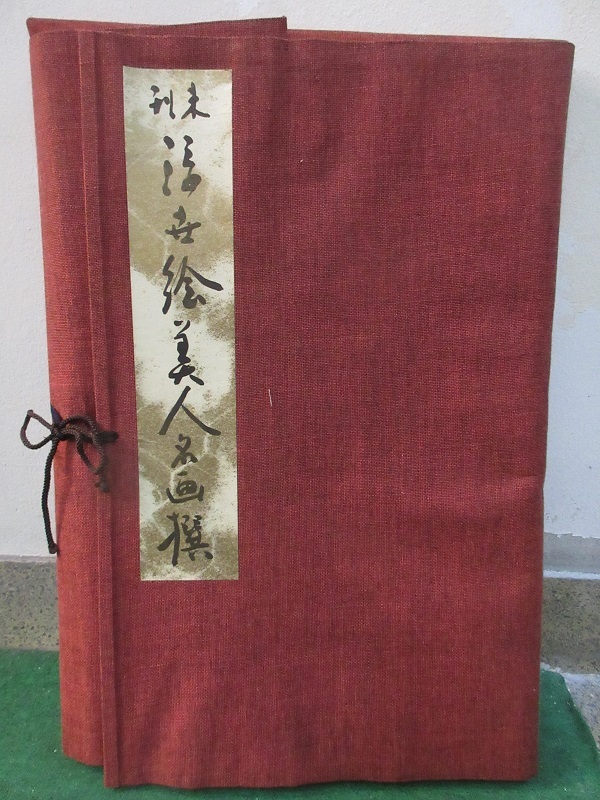 未刊
浮世絵美人名画撰